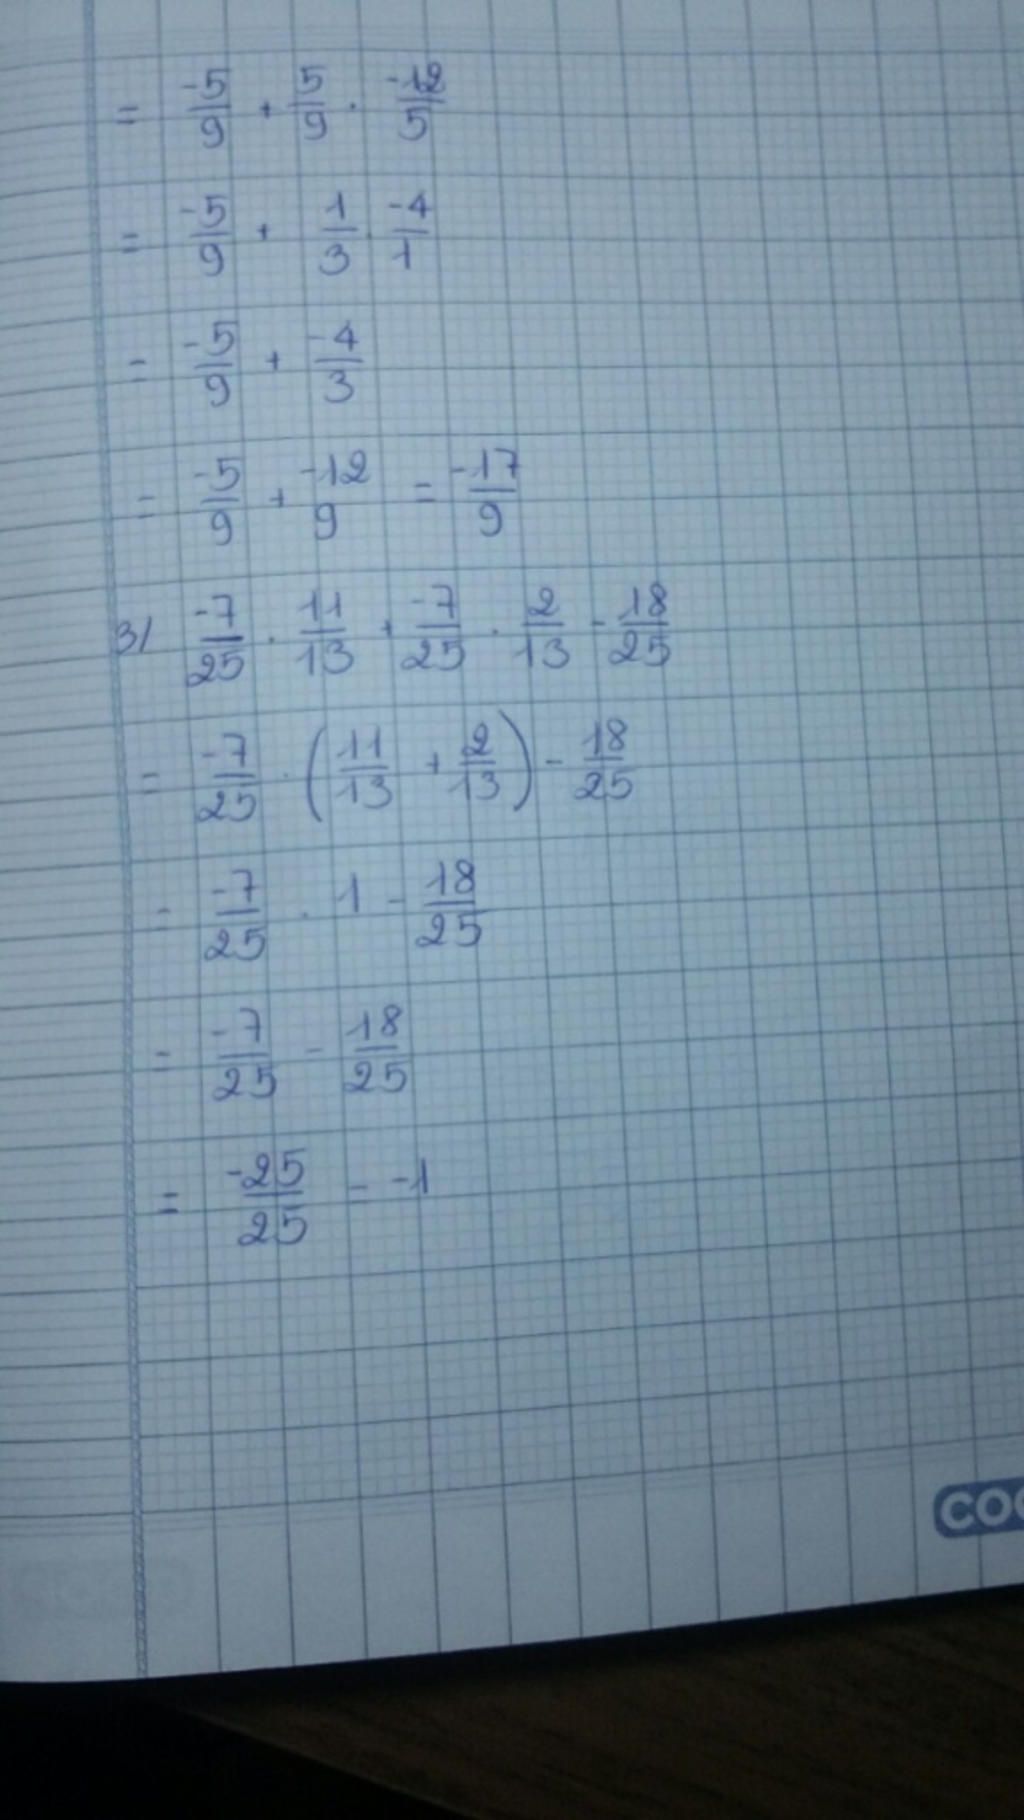 = -5/9 + 5/9 . -12/5
= -5/9 + 1/3 . -4/1
= -5/9 + -4/3
= -5/9 + -12/9 = -17/9
3/ -7/25 . 11/13 + -7/25 . 2/13 - 18/25
= -7/25 . (11/13 + 2/13) - 18/25
= -7/25 . 1 - 18/25
= -7/25 - 18/25
= -25/25 = -1